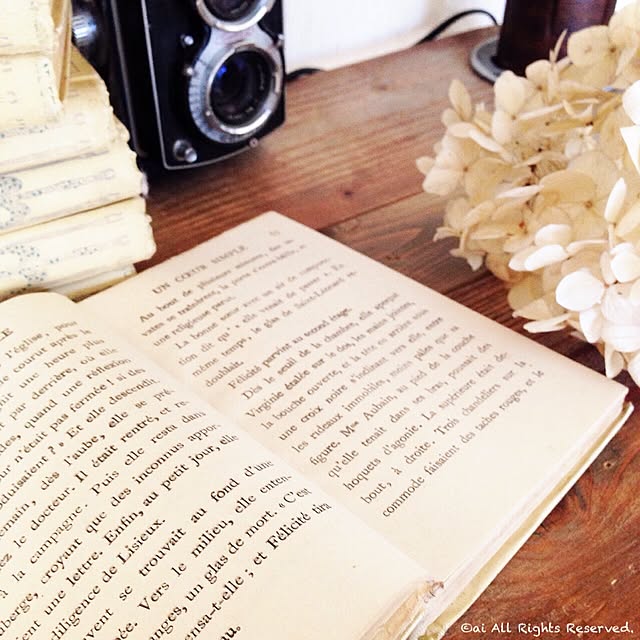 l'église pour
courut après le
une heure plus
par derrière, où elle
quand une réflexion
n'était pas fermée ! si des
? » Et elle descendit.
dès l'aube, elle se pré-
le docteur. Il était rentré, et re-
à la campagne. Puis elle resta dans
croyant que des inconnus appor-
une lettre. Enfin, au petit jour, elle
diligence de Lisieux.
se trouvait au fond d'une
Vers le milieu, elle enten-
un glas de mort. « C'est
; et Félicité tira
UN CŒUR SIMPLE
Au bout de plusieurs minutes, des sa-
vates se traînèrent, la porte s'entre-bâilla, et
une religieuse parut.
La bonne sœur avec un air de componc-
tion dit qu' « elle venait de passer ». En
même temps, le glas de Saint-Léonard re-
doublait.
Félicité parvint au second étage.
Dès le seuil de la chambre, elle aperçut
Virginie étalée sur le dos, les mains jointes,
la bouche ouverte, et la tête en arrière sous
une croix noire s'inclinant vers elle, entre
les rideaux immobiles, moins pâles que sa
figure. Mme Aubain, au pied de la couche
qu'elle tenait dans ses bras, poussait des
hoquets d'agonie. La supérieure était de-
bout, à droite. Trois chandeliers sur la
commode faisaient des taches rouges, et le
©ai All Rights Reserved.